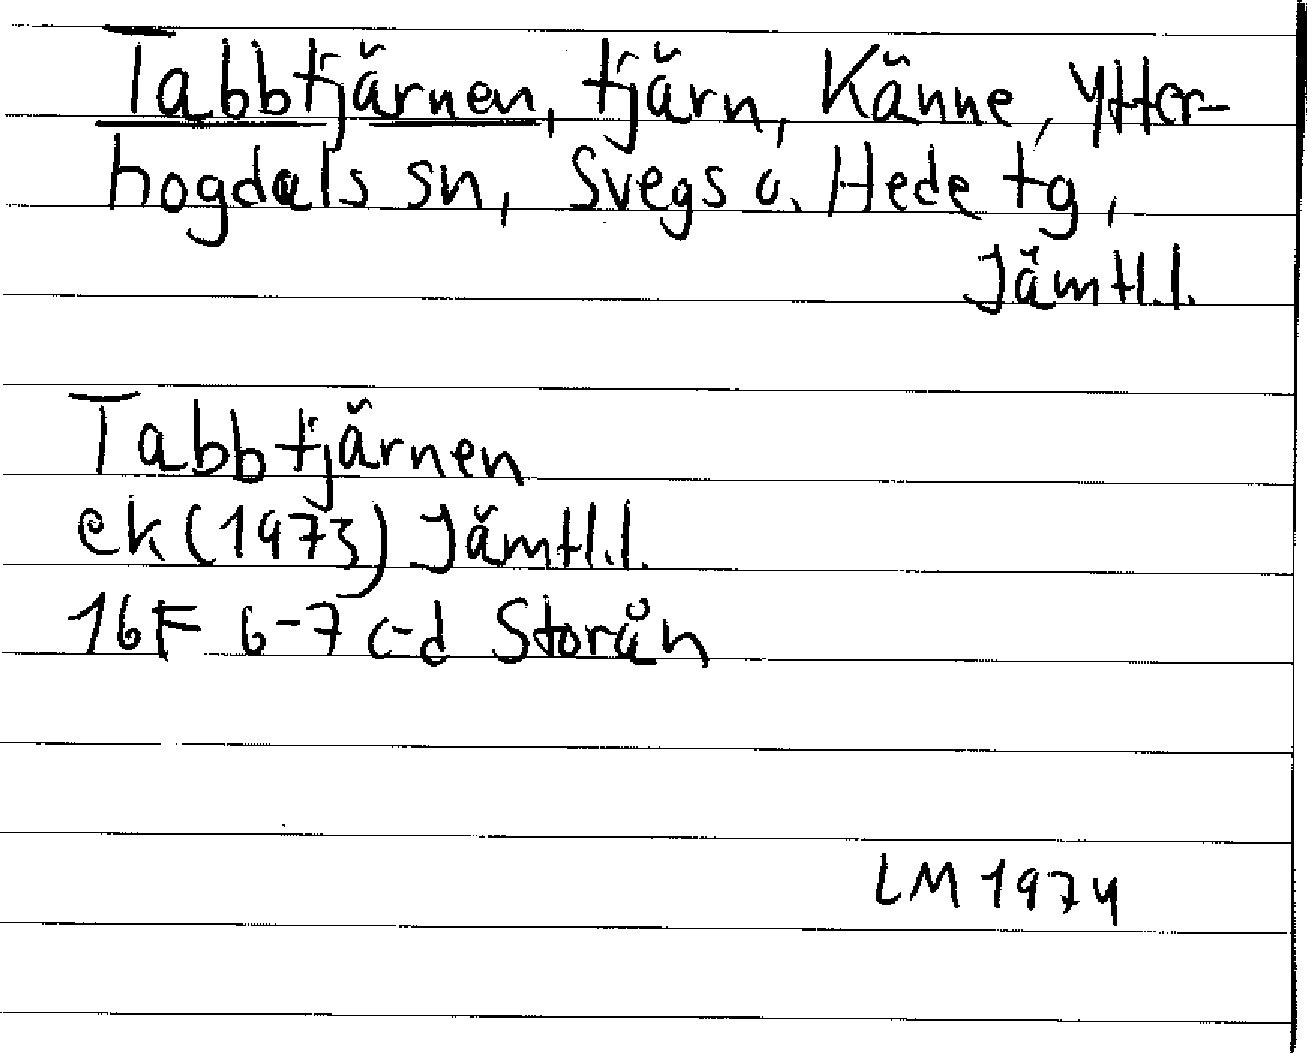 Tabbtjärnen, tjärn, Känne, Ytter-
hogdals sn, Svegs o. Hede tg,
Jämtl.l.
Tabbtjärnen
ek (1973) Jämtl.l.
16F 6-7 c-d Storån
LM 1974